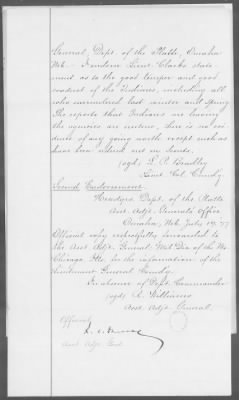 General, Dept of the Platte, Omaha
Neb. - Lieut. Clarks state-
ment as to the good temper and good
conduct of the Indians, including all
who surrendered last winter and spring
The reports that Indians are leaving
the agencies are untrue, there is no evi-
dence of any going north except such as
have been as Scouts,
(sgd) L. P. Bradley
Lieut Col. Comdg
Second Endorsement.
Headqrs. Dept. of the Platte
Asst. Adjt. General's Office
Omaha, Neb. July 77
Official copy respectfully forwarded to
the Asst Adjt. General Mil Div of the Mo
Chicago, Ills. for the information of the
Lieutenant General Comdg.
In absence of Dept. Commander
(sgd) R. Williams
Asst. Adjt. General.
Official
Asst Adjt Genl